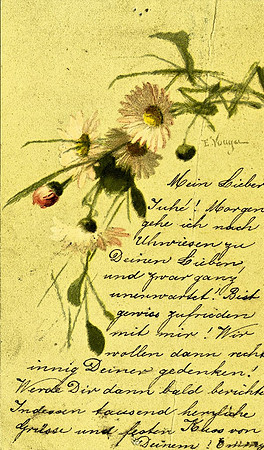 E. Vouga
Mein Lieber
Juhé! Morgen
gehe ich nach
Uhwiesen zu
Deinen Lieben,
und zwar ganz
unerwartet! Bist
gewiss zufrieden
mit mir! Wir
wollen dann recht
innig Deiner gedenken!
Werde Dir dann bald berichten
Indessen tausend herzliche
Grüsse und festen Kuss von
Deinem!